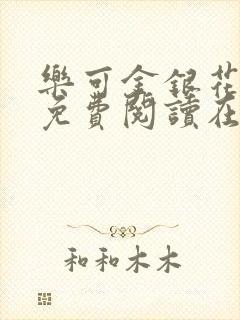 樂可金銀花
免費閱讀在
和和木木